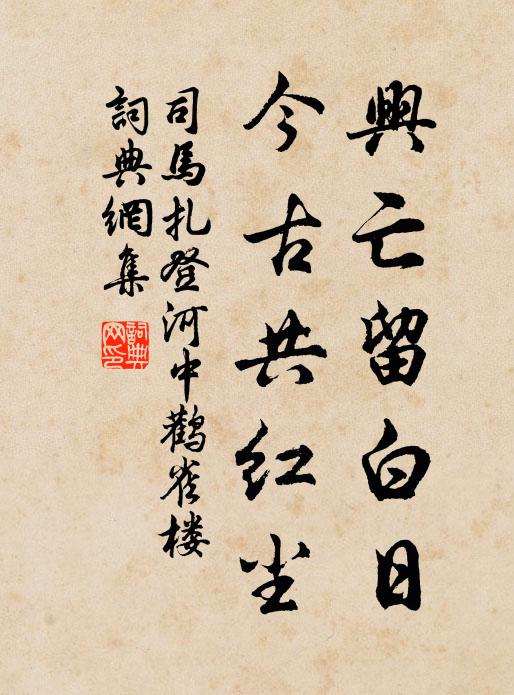 興亡留白日
今古共红尘
司馬扎登河中鹳雀楼
詞典網集
詞典网印